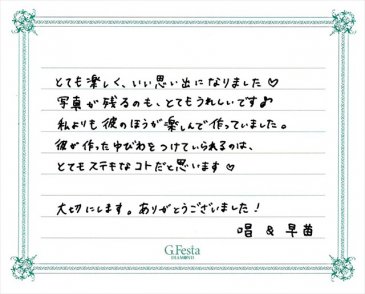 とても楽しく、いい思い出になりました♡
写真が残るのも、とてもうれしいです♪
私よりも彼のほうが楽しんで作っていました。
彼が作ったゆびわをつけていられるのは、
とてもステキなコトだと思います♡
大切にします。ありがとうございました！
唱 & 早苗
G.Festa
DIAMOND